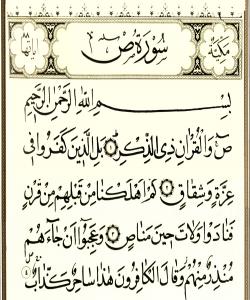 مَكِّيَّة
سُورَةُ صٓ
آيَاتُهَا ٨٨
بِسْمِ اللهِ الرَّحْمٰنِ الرَّحِيمِ
صٓ وَالْقُرْاٰنِ ذِي الذِّكْرِ ۝١ بَلِ الَّذِينَ كَفَرُوا فِي
عِزَّةٍ وَشِقَاقٍ ۝٢ كَمْ اَهْلَكْنَا مِنْ قَبْلِهِمْ مِنْ قَرْنٍ
فَنَادَوْا وَلَاتَ حِينَ مَنَاصٍ ۝٣ وَعَجِبُوا اَنْ جَاءَهُمْ
مُنْذِرٌ مِنْهُمْ وَقَالَ الْكَافِرُونَ هٰذَا سَاحِرٌ كَذَّابٌ ۝٤